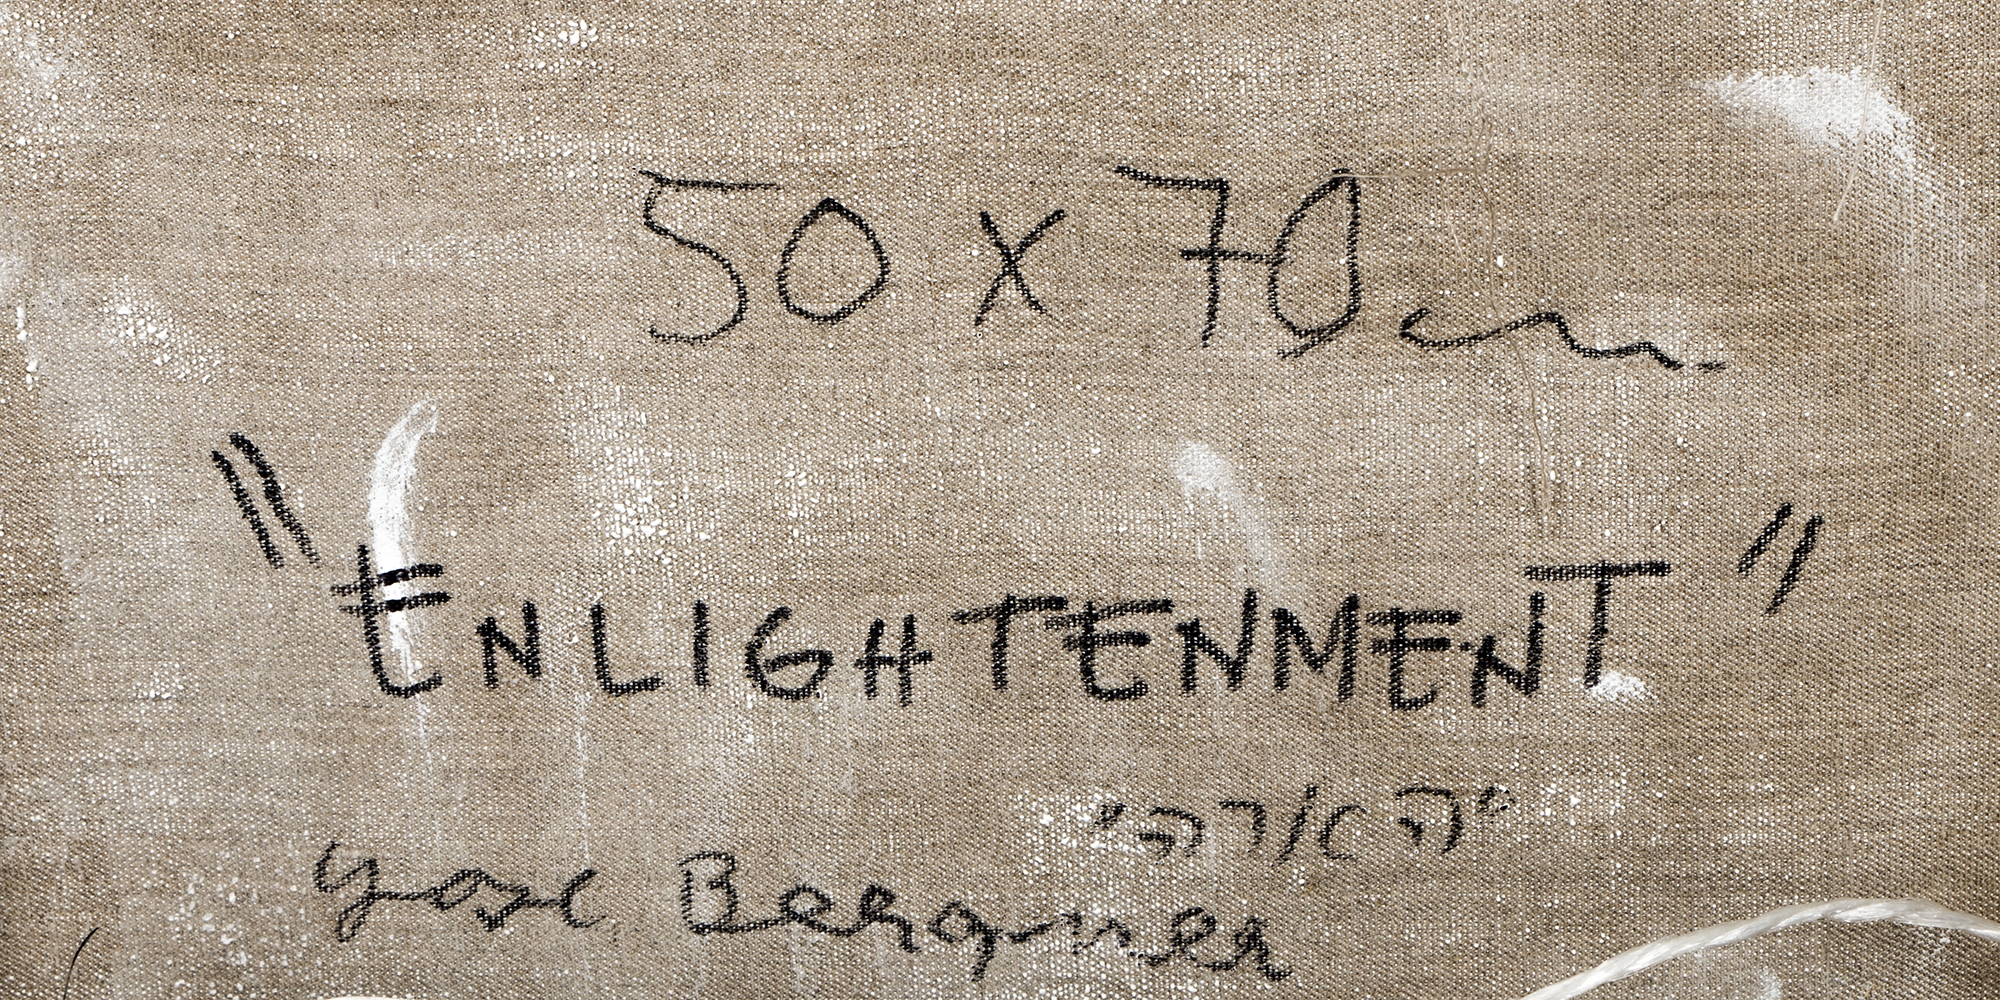 50 x 70 cm
"ENLIGHTENMENT"
"הארה"
Yosl Bergner